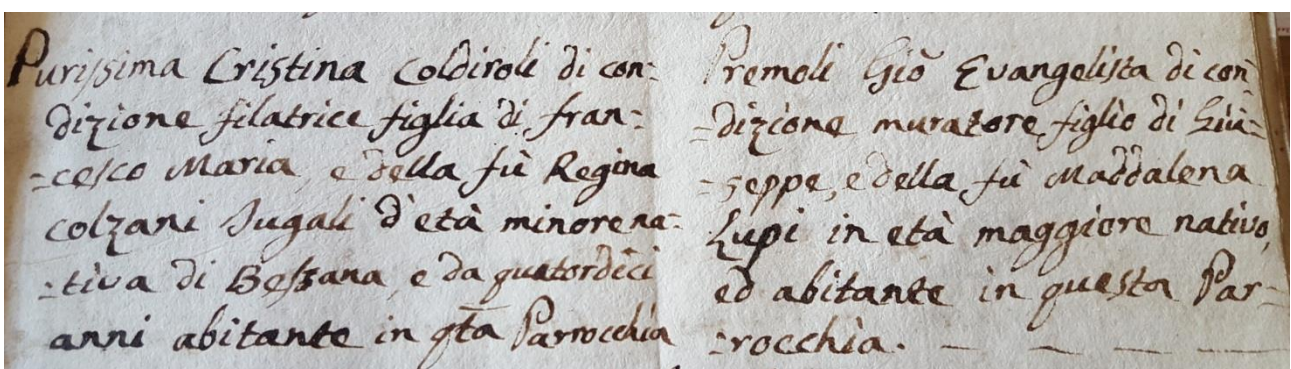 Purissima Cristina Coldiroli di con=
dizione filatrice figlia di fran=
=cesco Maria, e della fù Regina
colzani Jugali d'età minore na=
=tiva di Bessana, e da quatordici
anni abitante in qta Parrocchia
Premoli Gio Evangelista di con
=dizione muratore figlio di Giu=
=seppe, e della fù Maddalena
Lupi in età maggiore nativo,
ed abitante in questa Par=
=rocchia.